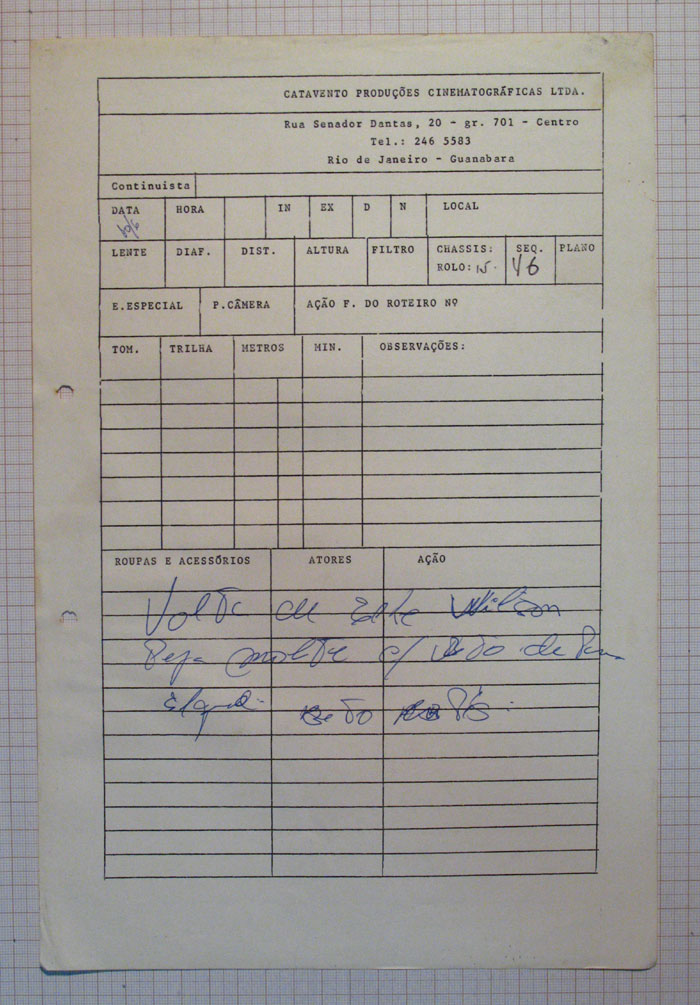 CATAVENTO PRODUÇÕES CINEMATOGRÁFICAS LTDA.
Rua Senador Dantas, 20 - gr. 701 - Centro
Tel.: 246 5583
Rio de Janeiro - Guanabara
Continuista
DATA HORA IN EX D N LOCAL
LENTE DIAF. DIST. ALTURA FILTRO CHASSIS: SEQ. PLANO
ROLO: 15. V6
E.ESPECIAL P.CÂMERA AÇÃO F. DO ROTEIRO Nº
TOM. TRILHA METROS MIN. OBSERVAÇÕES:
ROUPAS E ACESSÓRIOS ATORES AÇÃO
Volta de Wilson
c/ de